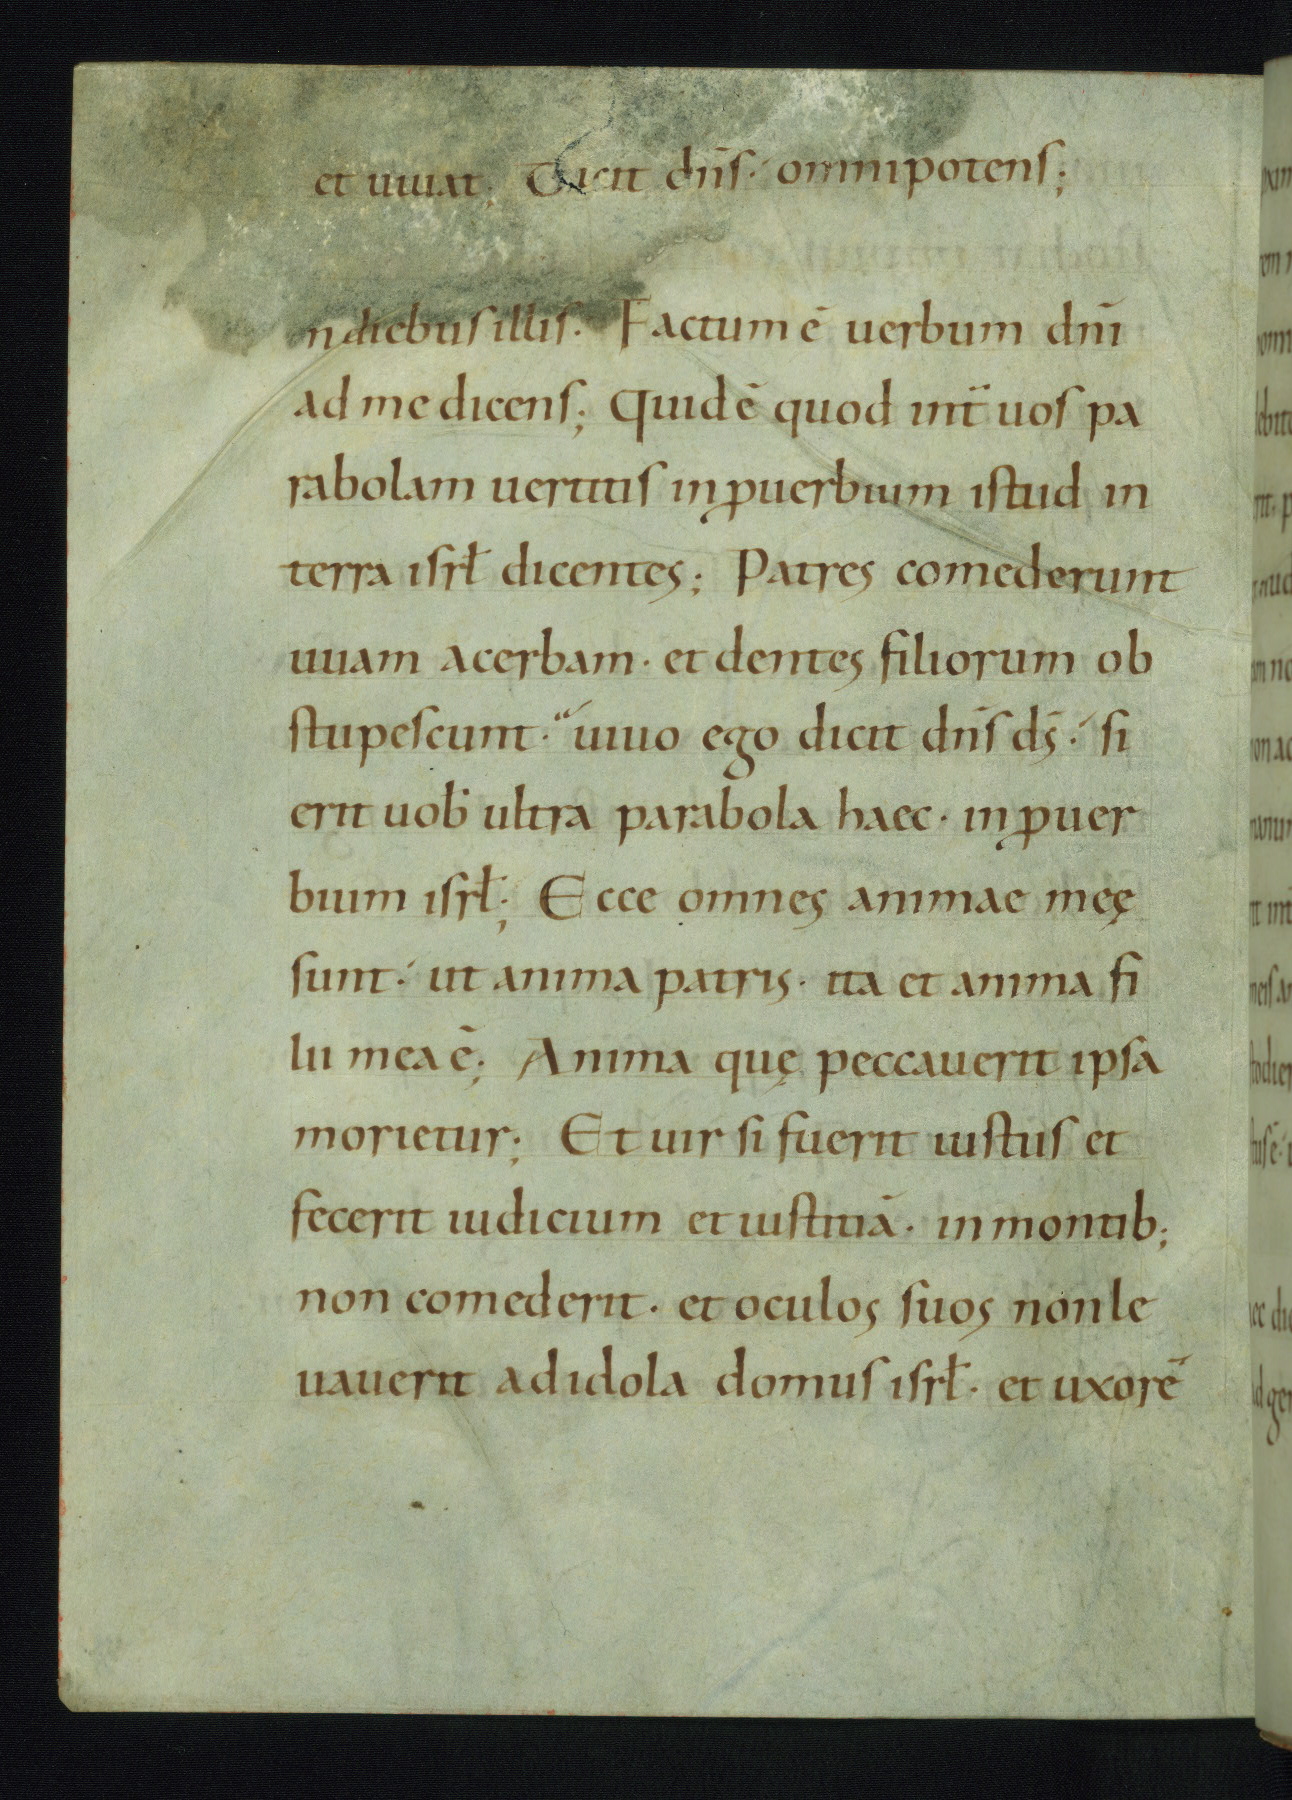 et uiuat; Dicit dn̄s· omnipotens;
n diebus illis· Factum ē uerbum dn̄i
ad me dicens; Quid ē quod int̄ uos pa
rabolam uertitis in ꝓuerbium istud in
terra isrł dicentes; Patres comederunt
uuam acerbam· et dentes filiorum ob
stupescunt· uiuo ego dicit dn̄s ds̄· si
erit uob̄ ultra parabola haec· in ꝓuer
bium isrł; Ecce omnes animae meę
sunt· ut anima patris· ita et anima fi
lii mea ē; Anima quę peccauerit ipsa
morietur; Et uir si fuerit iustus et
fecerit iudicium et iustitiā· in montib;
non comederit· et oculos suos non le
uauerit ad idola domus isrł· et uxorē